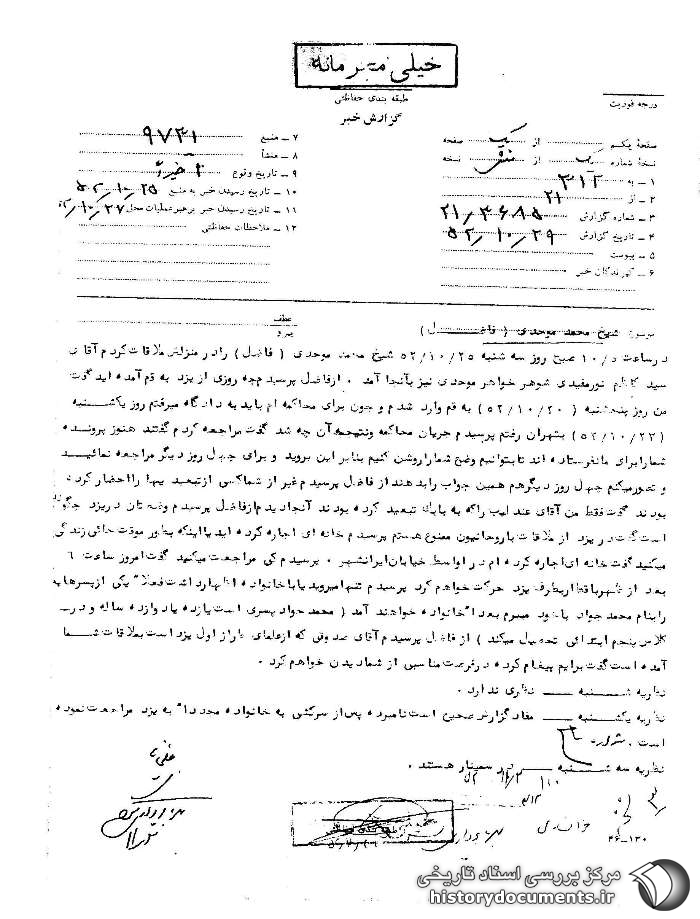 خیلی محرمانه
طبقه بندی حفاظتی
گزارش خبر
درجه فوریت
صفحه یکم از یک صفحه
نسخه شماره از نسخه
۱ ـ به ۳۱۲
۲ ـ از ۲۱
۳ ـ شماره گزارش
۴ ـ تاریخ گزارش ۵۲/۱۰/۲۹
۵ ـ پیوست
۶ ـ گیرندگان خبر
۷ ـ منبع ۹۷۳۱
۸ ـ منشأ
۹ ـ تاریخ وقوع
۱۰ ـ تاریخ رسیدن خبر به منبع ۵۲/۱۰/۲۵
۱۱ ـ تاریخ رسیدن خبر برهبر عملیات محل ۵۲/۱۰/۲۷
۱۲ ـ ملاحظات حفاظتی
موضوع شیخ محمد موحدی ( فاضل )
عطف
پیرو
در ساعت ۱۰/ صبح روز سه شنبه ۵۲/۱۰/۲۵ شیخ محمد موحدی ( فاضل ) را در منزلش ملاقات کردم آقای
سید کاظم نورمفیدی شوهر خواهر موحدی نیز بآنجا آمد ۰ از فاضل پرسیدم چه روزی از یزد به قم آمده اید گفت
من روز پنجشنبه ( ۵۲/۱۰/۲۰ ) به قم وارد شدم و چون برای محاکمه ام باید به دادگاه میرفتم روز یکشنبه
( ۵۲/۱۰/۲۳ ) بتهران رفتم پرسیدم جریان محاکمه ونتیجه آن چه شد گفت مراجعه کردم گفتند هنوز پرونده
شما را برای ما نفرستاده اند تا بتوانیم وضع شما را روشن کنیم بنابر این بروید و برای چهل روز دیگر مراجعه نمائید
و تصور میکنم چهل روز دیگر هم همین جواب را بدهند از فاضل پرسیدم غیر از شما کسی از تبعید یها را احضار کرده
بودند گفت فقط من آقای عند لیب را که به بابک تبعید کرده بودند آنجا دیدم از فاضل پرسیدم وضعتان در یزد چگونه
است گفت در یزد از ملاقات با روحانیون ممنوع هستم پرسیدم خانه ای اجاره کرده اید یا اینکه بطور موقت جائی زندگی
میکنید گفت خانه ای اجاره کرده ام در اواسط خیابان ایرانشهر ۰ پرسیدم کی مراجعت میکنید گفت امروز ساعت ۶
بعد از ظهر با قطار بطرف یزد حرکت خواهم کرد پرسیدم تنها میروید یا با خانواده اظهار داشت فعلا" یکی از پسرها یم
را بنام محمد جواد با خود میبرم بعدا" خانواده خواهند آمد ( محمد جواد پسری است یازده یا دوازده ساله و در
کلاس پنجم ابتدائی تحصیل میکند ) از فاضل پرسیدم آقای صدوقی که از علمای طراز اول یزد است بملاقات شما
آمده است گفت برایم پیغام کرده در فرصت مناسبی از شما دیدن خواهم کرد ۰
نظریه شنبه ـ نظری ندارد ۰
نظریه یکشنبه ـ مفاد گزارش صحیح است نامبرده پس از سرکشی به خانواده مجددا" به یزد مراجعت نموده
است ۰
نظریه سه شنبه ـ در سمینار هستند ۰
مرکز بررسی اسناد تاریخی
historydocuments.ir